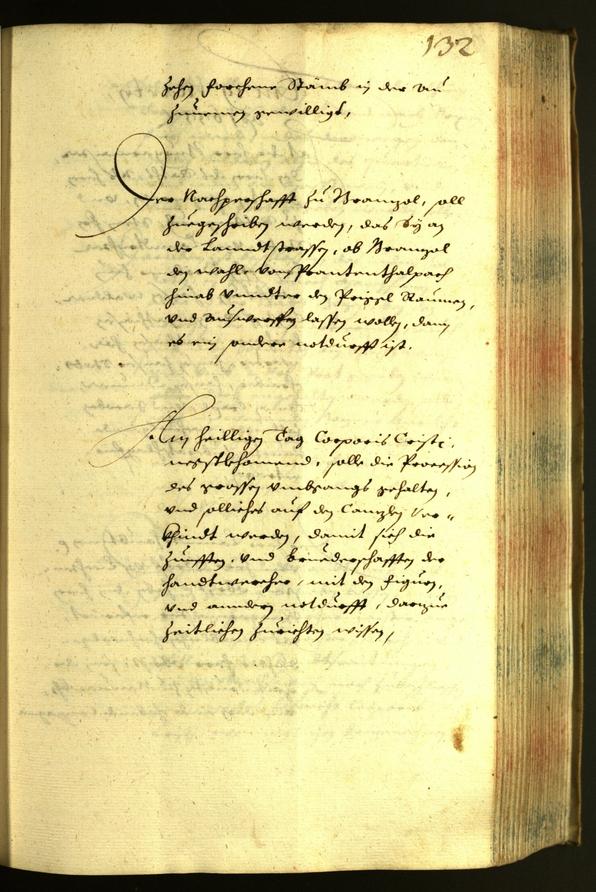 132
zehen forchene Stämb in der Au
zunemen gewilligt,
Der Nachperschafft zu Branzol, soll
zuegeschriben werden, das sy an
der Lanndtstrassen, ob Branzol
den wahle von Prantenthalpach
hinab unndter den Peizel Raumen,
und auswerffen lassen wollen, dann
es ein sondere notdurfft ist.
Am heilligen Tag Corporis Cristi,
negstkhomend, solle die Procession
des grossen umbgangs gehalten,
und solliches auf den Canzlen ver-
khindt werden, damit sich die
Zünfften, und bruederschafften der
handtwercher, mit den figurn,
und anndern notdurfft, darzue
zeitlichen zurichten wissen,